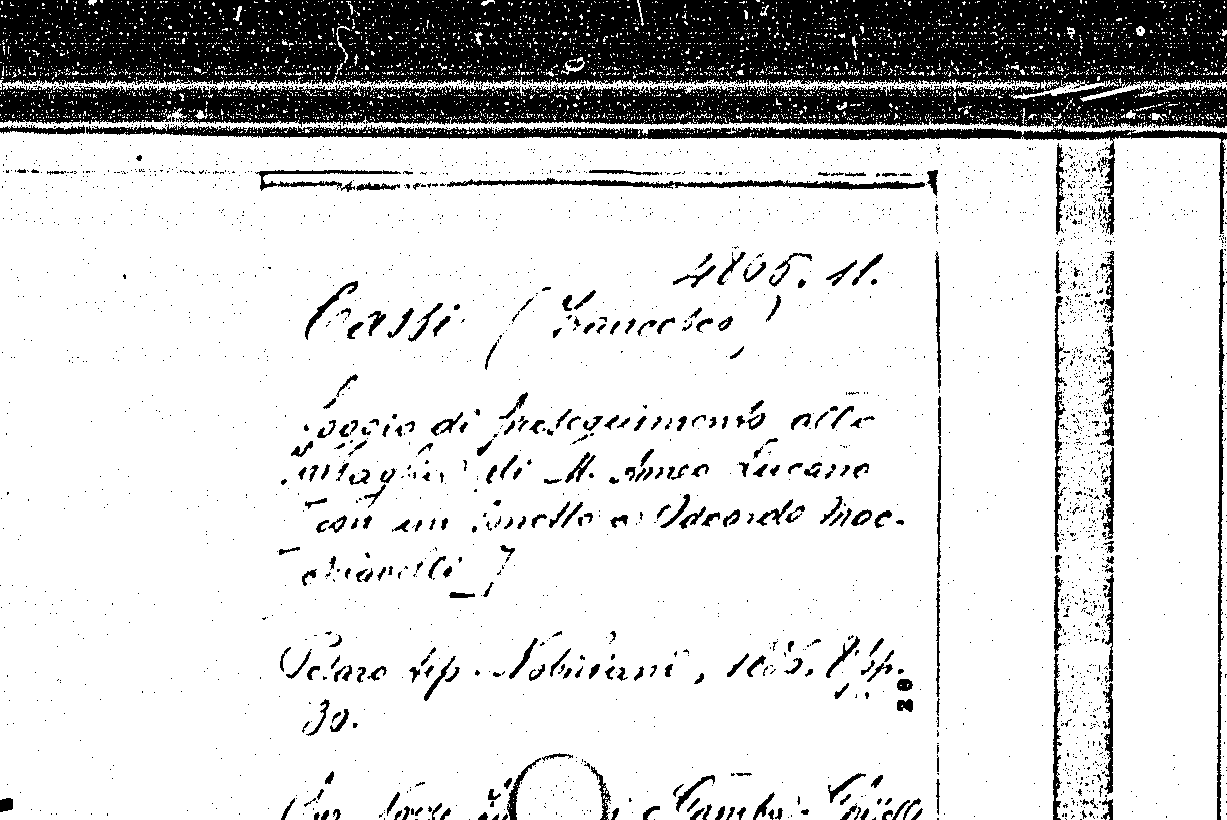 4805. 11.
Cassi (Francesco)
Saggio di proseguimento alla
Farsaglia di M. Anneo Lucano
[con un sonetto a Odoardo Mac-
chiavelli]
Pesaro tip. Nobiliani, 1835. 8° pp.
30.
20
Per Nozze e